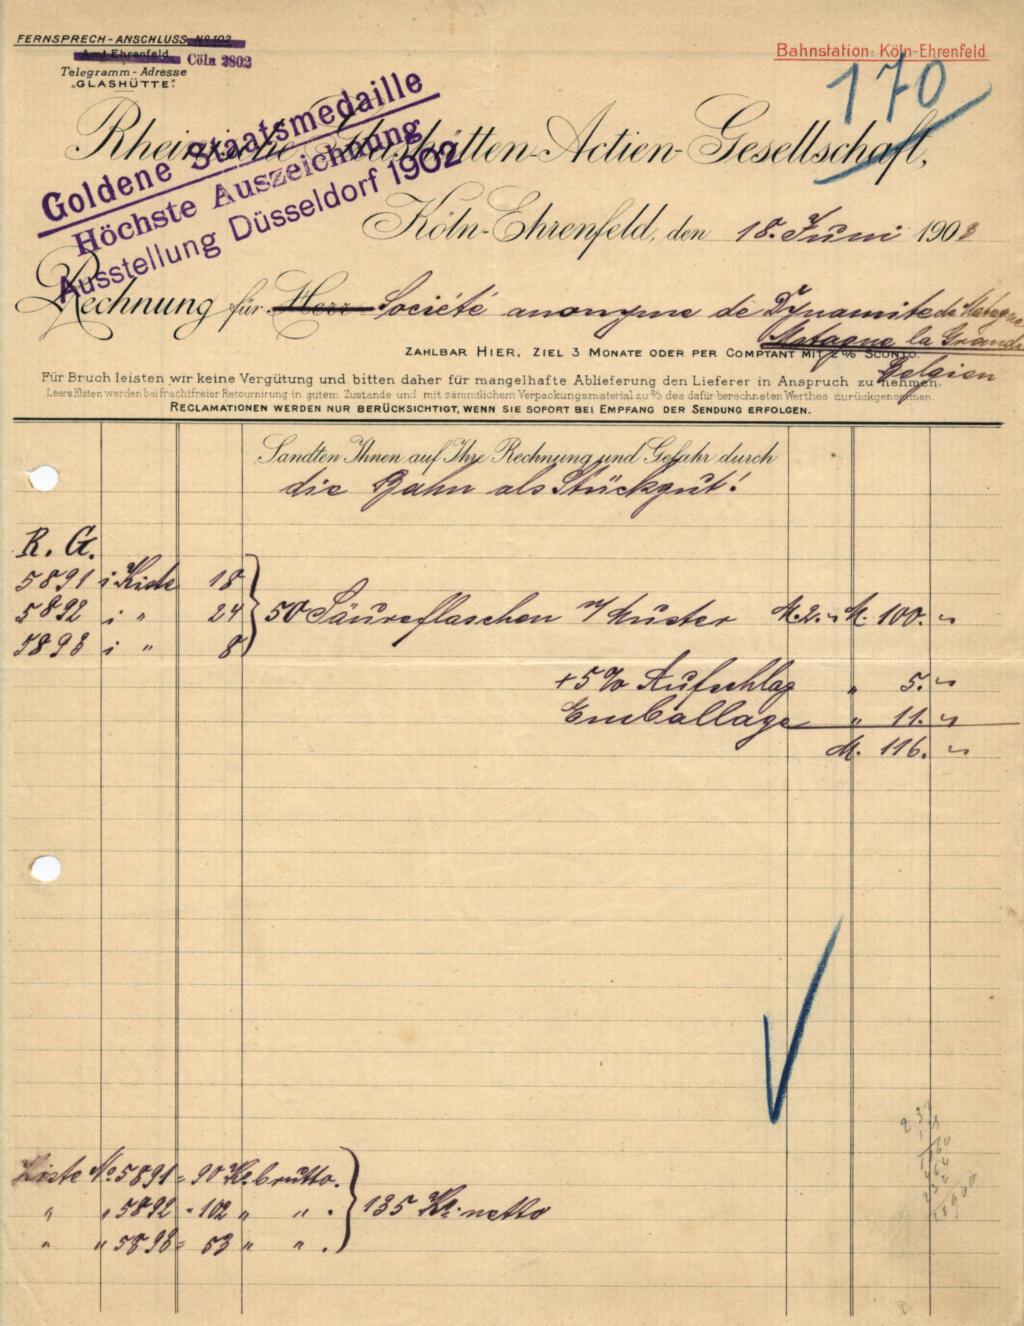 FERNSPRECH-ANSCHLUSS No 102
Amt Ehrenfeld Cöln 2802
Telegramm-Adresse
„GLASHÜTTE".
Bahnstation: Köln-Ehrenfeld
170
Goldene Staatsmedaille
Höchste Auszeichnung
Ausstellung Düsseldorf 1902
Rheinische Glashütten-Actien-Gesellschaft,
Köln-Ehrenfeld, den 18. Juni 1908
Rechnung für Herr Société anonyme de Dynamite de Matagne
Matagne la Grande
Belgien
ZAHLBAR HIER, ZIEL 3 MONATE ODER PER COMPTANT MIT 2% SCONTO.
Für Bruch leisten wir keine Vergütung und bitten daher für mangelhafte Ablieferung den Lieferer in Anspruch zu nehmen.
Leere Kisten werden bei frachtfreier Retournirung in gutem Zustande und mit sämmtlichem Verpackungsmaterial zu 2/3 des dafür berechneten Werthes zurückgenommen.
RECLAMATIONEN WERDEN NUR BERÜCKSICHTIGT, WENN SIE SOFORT BEI EMPFANG DER SENDUNG ERFOLGEN.
Sandten Ihnen auf Ihre Rechnung und Gefahr durch
die Bahn als Stückgut!
R. G.
5891 i Kiste 18
5892 i " 24 50 Säureflaschen n/ Muster M. 2. " M. 100. "
5893 i " 8
+5% Aufschlag " 5. "
Emballage " 11. "
M. 116. "
Kiste No 5891 = 90 Ko brutto.
" " 5892 = 102 " " . 135 Ko. netto
" " 5893 = 53 " " .